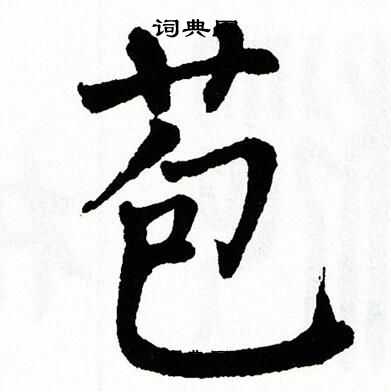 词典网
苞